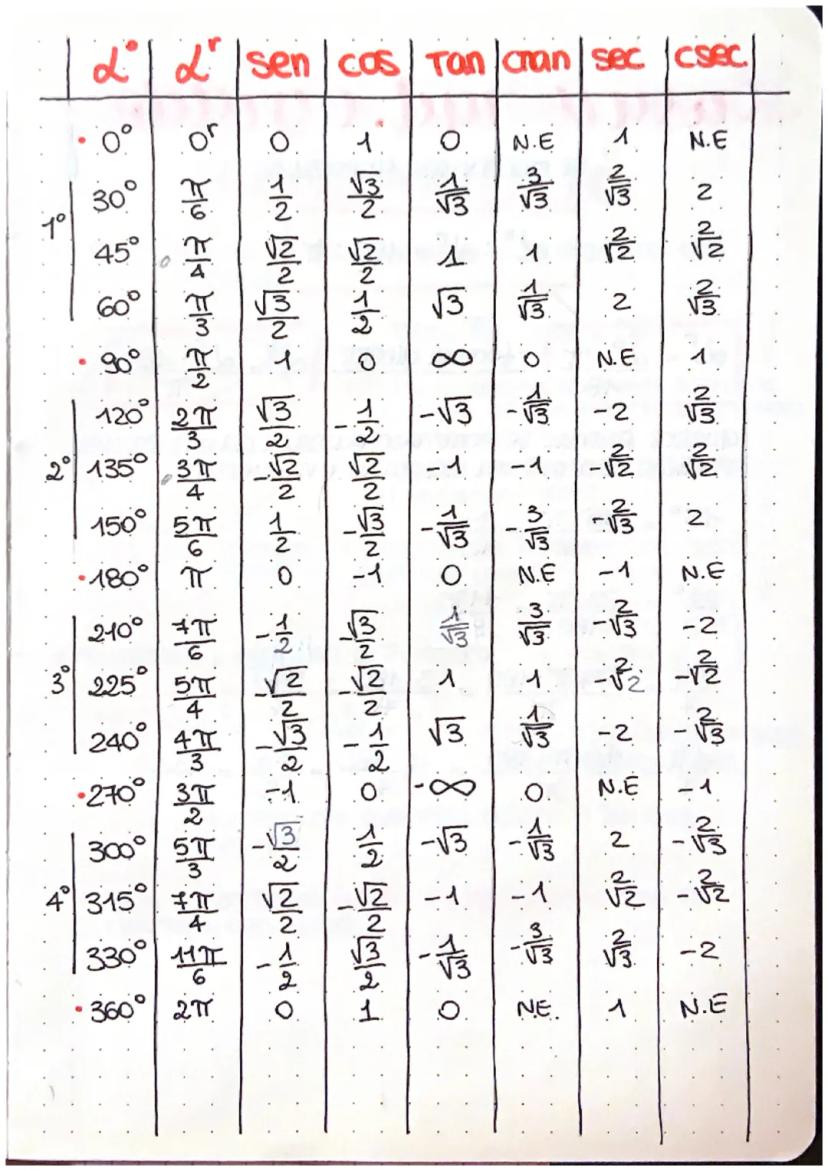 α° αʳ sen cos Tan cnan sec csec
0° 0ʳ 0 1 0 N.E 1 N.E
30° π/6 1/2 √3/2 1/√3 3/√3 2/√3 2
1° 45° π/4 √2/2 √2/2 1 1 2/√2 2/√2
60° π/3 √3/2 1/2 √3 1/√3 2 2/√3
90° π/2 1 0 ∞ 0 N.E 1
120° 2π/3 √3/2 -1/2 -√3 -1/√3 -2 2/√3
2° 135° 3π/4 -√2/2 √2/2 -1 -1 -2/√2 2/√2
150° 5π/6 1/2 -√3/2 -1/√3 -3/√3 -2/√3 2
180° π 0 -1 0 N.E -1 N.E
210° 7π/6 -1/2 -√3/2 1/√3 3/√3 -2/√3 -2
3° 225° 5π/4 -√2/2 -√2/2 1 1 -2/√2 -2/√2
240° 4π/3 -√3/2 -1/2 √3 1/√3 -2 -2/√3
270° 3π/2 -1 0 -∞ 0 N.E -1
300° 5π/3 -√3/2 1/2 -√3 -1/√3 2 -2/√3
4° 315° 7π/4 √2/2 -√2/2 -1 -1 2/√2 -2/√2
330° 11π/6 -1/2 √3/2 -1/√3 -3/√3 2/√3 -2
360° 2π 0 1 0 NE. 1 N.E